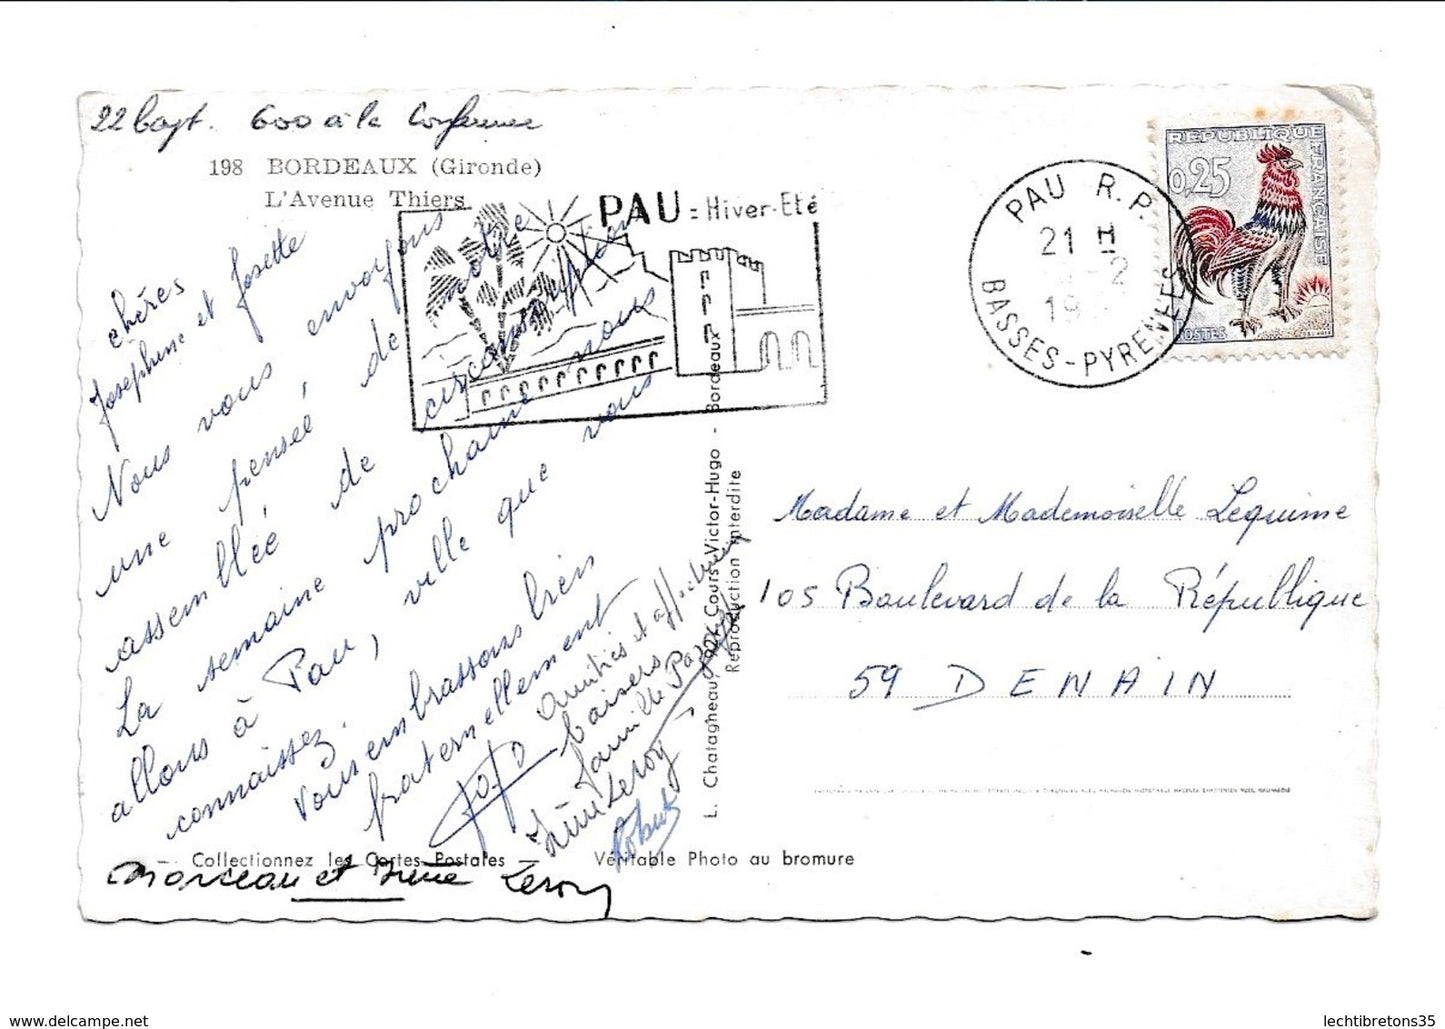 22 bapt. 600 à la
198 BORDEAUX (Gironde)
L'Avenue Thiers
chères
Joséphine et Josette
Nous vous envoyons
une pensée de notre
assemblée de circonscription
La semaine prochaine nous
allons à Pau, ville que vous
connaissez.
Vous embrassons bien
fraternellement
Amitiés et affectueux
baisers
famille
Leroy
Robert
Collectionnez les Cartes Postales —
Véritable Photo au bromure
et Irène Leroy
PAU = Hiver-Eté
L. Chatagneau, Cours Victor-Hugo - Bordeaux
Reproduction interdite
PAU R.P.
21 H
19
BASSES-PYRENEES
REPUBLIQUE FRANÇAISE
0,25
POSTES
Madame et Mademoiselle Lequime
105 Boulevard de la République
59 DENAIN
www.delcampe.net
lechtibretons35